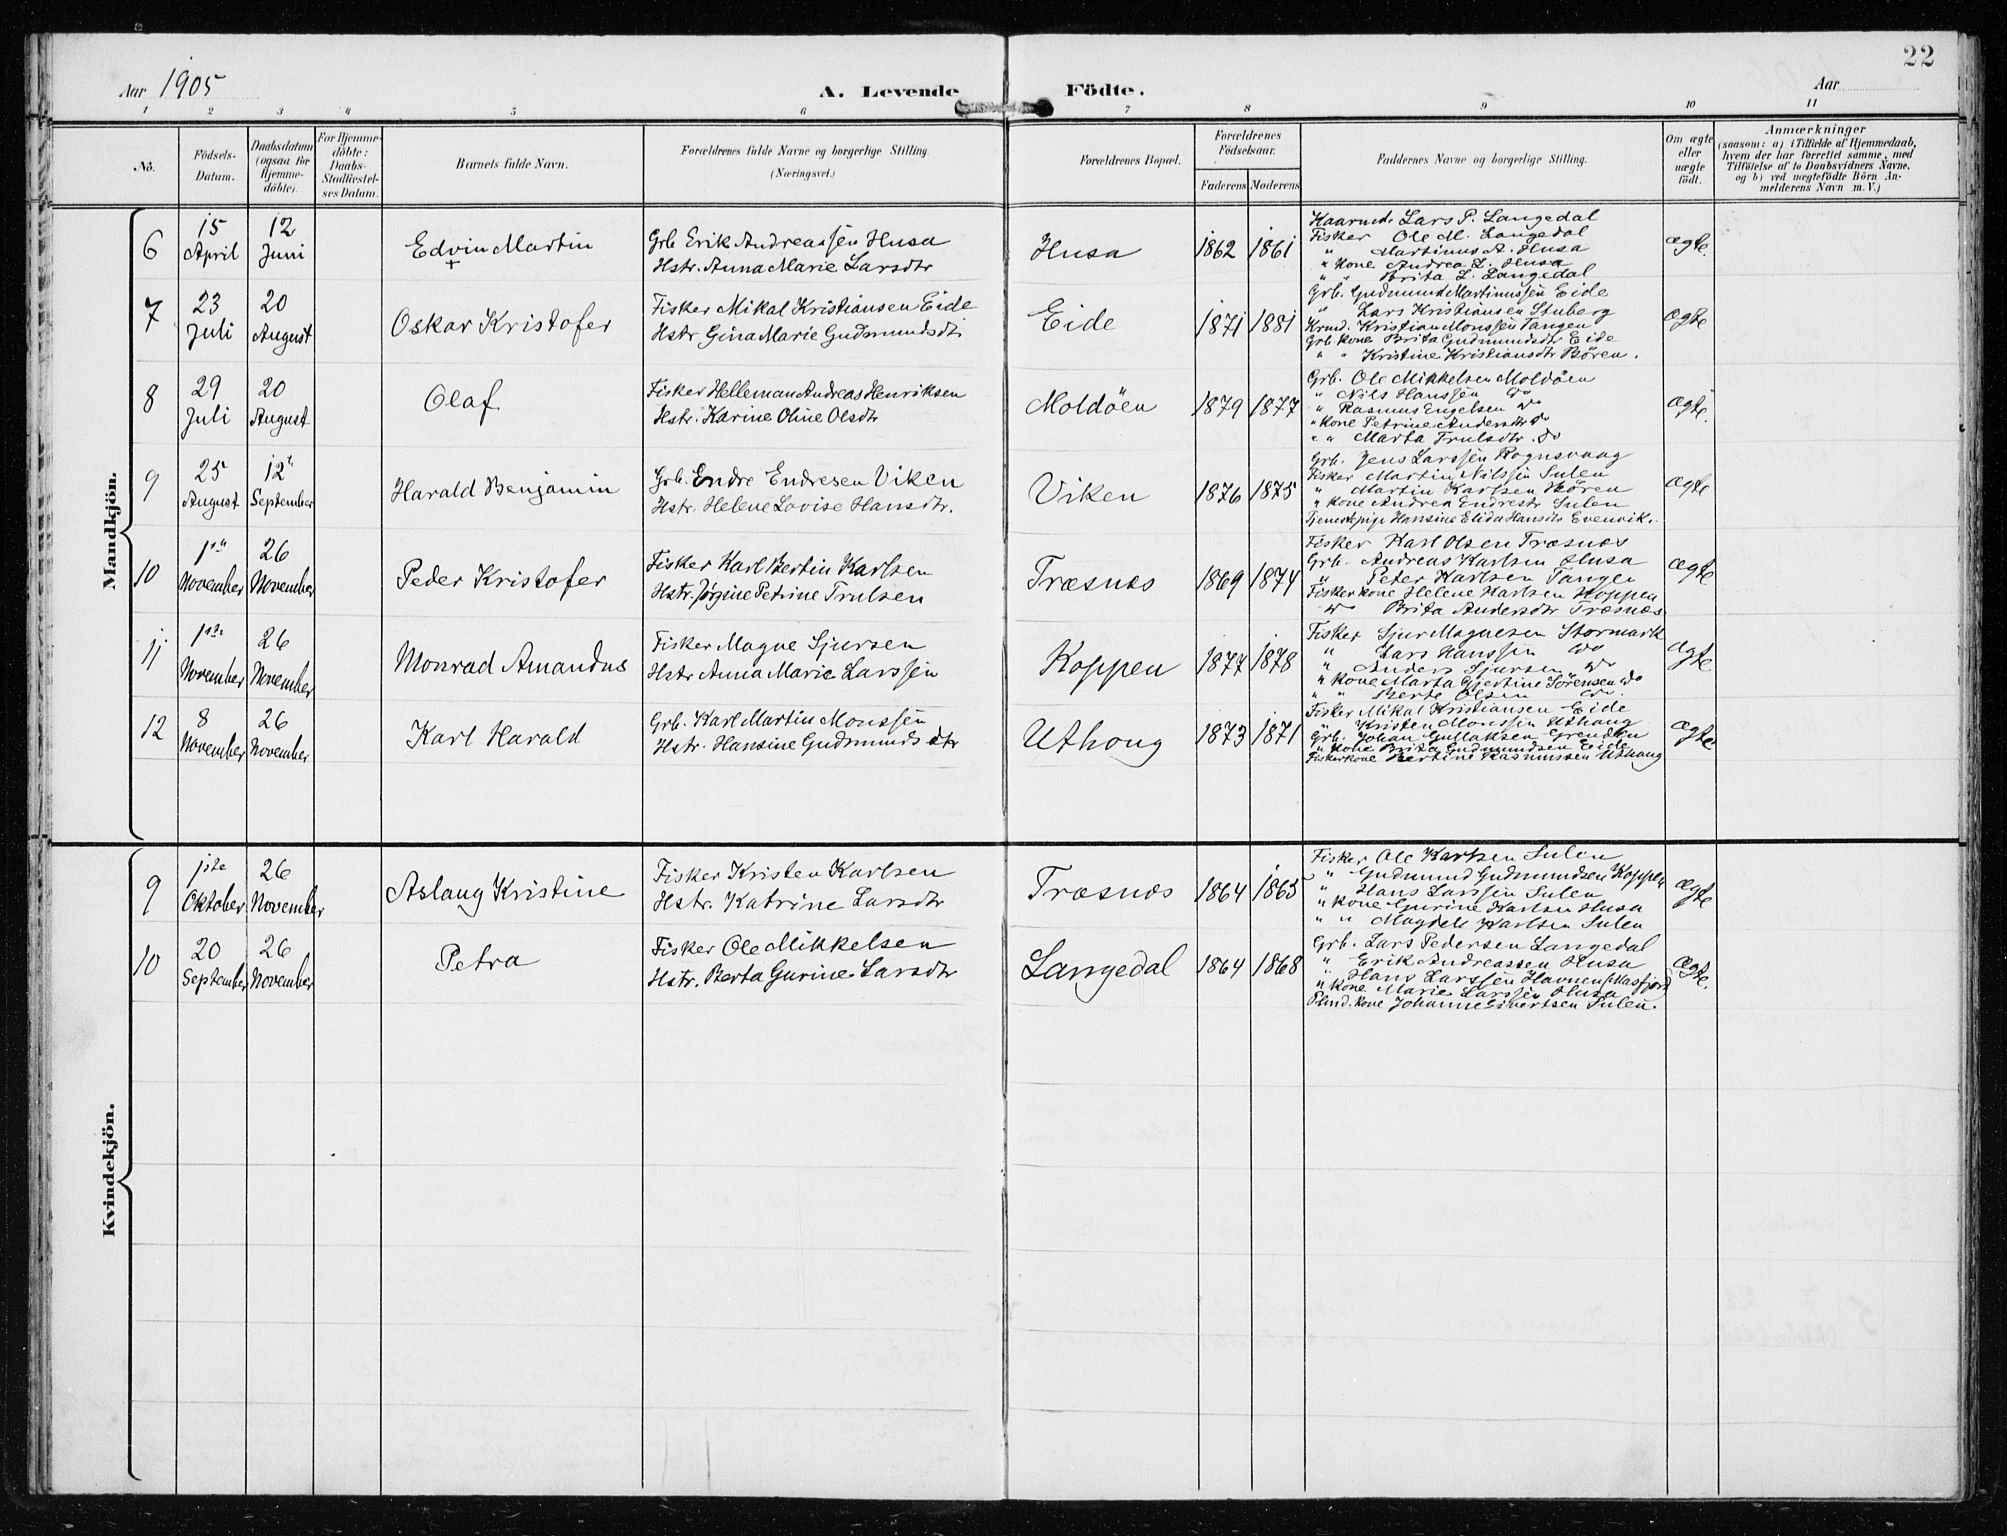 22
Aar 1905
A. Levende Födte.
Aar
1 2 3 4 5 6 7 8 9 10 11
No.
Födsels-Datum.
Daabsdatum (ogsaa for Hjemme-döbte).
For Hjemme-döbte: Daabs-Stadfæstel-ses Datum.
Barnets fulde Navn.
Forældrenes fulde Navne og borgerlige Stilling.
(Næringsvei.)
Forældrenes Bopæl.
Forældrenes Födselsaar.
Faderens Moderens
Faddernes Navne og borgerlige Stilling.
Om ægte eller uægte födt.
Anmærkninger
(saasom: a) i Tilfælde af Hjemmedaab, hvem der har forrettet samme, med Tilföielse af to Daabsvidners Navne, og b) ved uægtefödte Börn An-melderens Navn m. V.)
Mandkjön.
6
15 April
12 Juni
Edvin Martin
+
Grb Erik Andreassen Husa
Hstr. Anna Marie Larsdtr
Husa
1862 1861
Lars P. Langedal
Fisker Ole M. Langedal
" Martinus A. Husa
" Kone Andrea L. Husa
" " Brita L. Langedal
ægte.
7
23 Juli
20 August
Oskar Kristofer
Fisker Mikal Kristiansen Eide
Hstr Gina Marie Gudmundsdtr
Eide
1871 1881
Grb. Gudmund Martinussen Eide
" Lars Kristiansen Stuberg
Krmd. Kristian Monssen Tangen
Grb kone Brita Gudmundsdtr Eide
" " Kristine Kristiansdtr Bören.
ægte
8
29 Juli
20 August
Olaf
Fisker Helleman Andreas Henriksen
Hstr. Karine Oline Olsdtr
Moldöen
1879 1877
Grb. Ole Mikkelsen Moldöen
" Nils Hanssen do
" Rasmus Engelsen do
" Kone Petrine Andersdtr do
" " Marta Trulsdtr. do
ægte.
9
25 August
12te September
Harald Benjamin
Grb. Endre Endresen Viken
Hstr. Helene Lovise Hansdtr.
Viken
1876 1875
Grb. Jens Larssen Rognsvaag
Fisker Martin Nilssen Sulen
" Martin Karlsen Bören
" Kone Andrea Endresdtr Sulen
Tjenestepige Hansine Elida Hansdtr Evenvik.
ægte
10
1ste November
26 November
Peder Kristofer
Fisker Karl Bertin Karlsen
Hstr. Jørgine Petrine Trulsen
Træsnæs
1869 1874
Fisker Karl Olsen Træsnæs
Grb. Andreas Karlsen Husa
" Peter Karlsen Tangen
Fisker kone Helene Karlsen Koppen
do Brita Andersdtr Træsnæs
ægte
11
1ste November
26 November
Monrad Amandus
Fisker Magne Sjursen
Hstr Anna Marie Larssen
Koppen
1877 1878
Fisker Sjur Magnesen Stormark
" Lars Hanssen do
" Anders Sjursen do
" Kone Marta Gjertine Sörensen do
" " Berte Olsen do.
ægte
12
8 November
26 November
Karl Harald
Grb. Karl Martin Monssen
Hstr. Hansine Gudmundsdtr
Uthoug
1873 1871
Fisker Mikal Kristiansen Eide
" Kristen Monssen Uthoug
Grb. Johan Gullaksen Grendlen
" Kone Brita Gudmundsen Eide
Fiskerkone Bertine Rasmussen Uthoug
ægte
Kvindekjön.
9
1ste Oktober
26 November
Aslaug Kristine
Fisker Kristen Karlsen
Hstr. Katrine Larsdtr
Træsnæs
1864 1865
Fisker Ole Karlsen Sulen
" Gudmund Gudmundsen Koppen
" Hans Larssen Sulen
" Kone Gurine Karlsen Husa
" " Magdele Karlsen Sulen
ægte
10
20 September
26 November
Petra
Fisker Ole Mikkelsen
Hstr. Berta Gurine Larsdtr
Langedal
1864 1868
Grb. Lars Pedersen Langedal
" Erik Andreassen Husa
" Hans Larssen Havnen (Masfjord)
" Kone Marie Larssen Husa
Kone Johanne Sivertsen Sulen.
ægte.